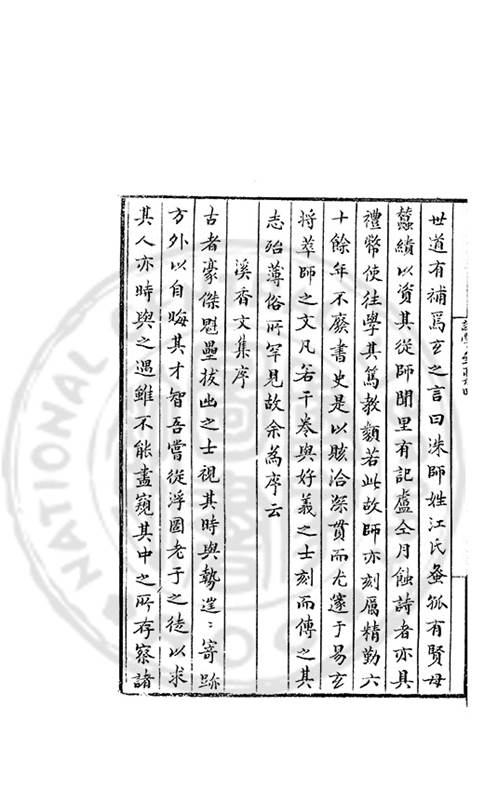 世道有補焉玄之言曰洙師姓江氏蚤孤有賢母
蠶績以資其從師聞里有記盧仝月蝕詩者亦具
禮幣使往學其篤教類若此故師亦刻厲精勤六
十餘年不廢書史是以賅洽深貫而尤邃于易玄
將萃師之文凡若干卷與好義之士刻而傳之其
志殆薄俗所罕見故余為序云
溪香文集序
古者豪傑魁壘拔出之士視其時與勢違〻寄跡
方外以自晦其才智吾嘗從浮圖老子之徒以求
其人亦時與之遇雖不能盡窺其中之所存察諸
NATIONAL